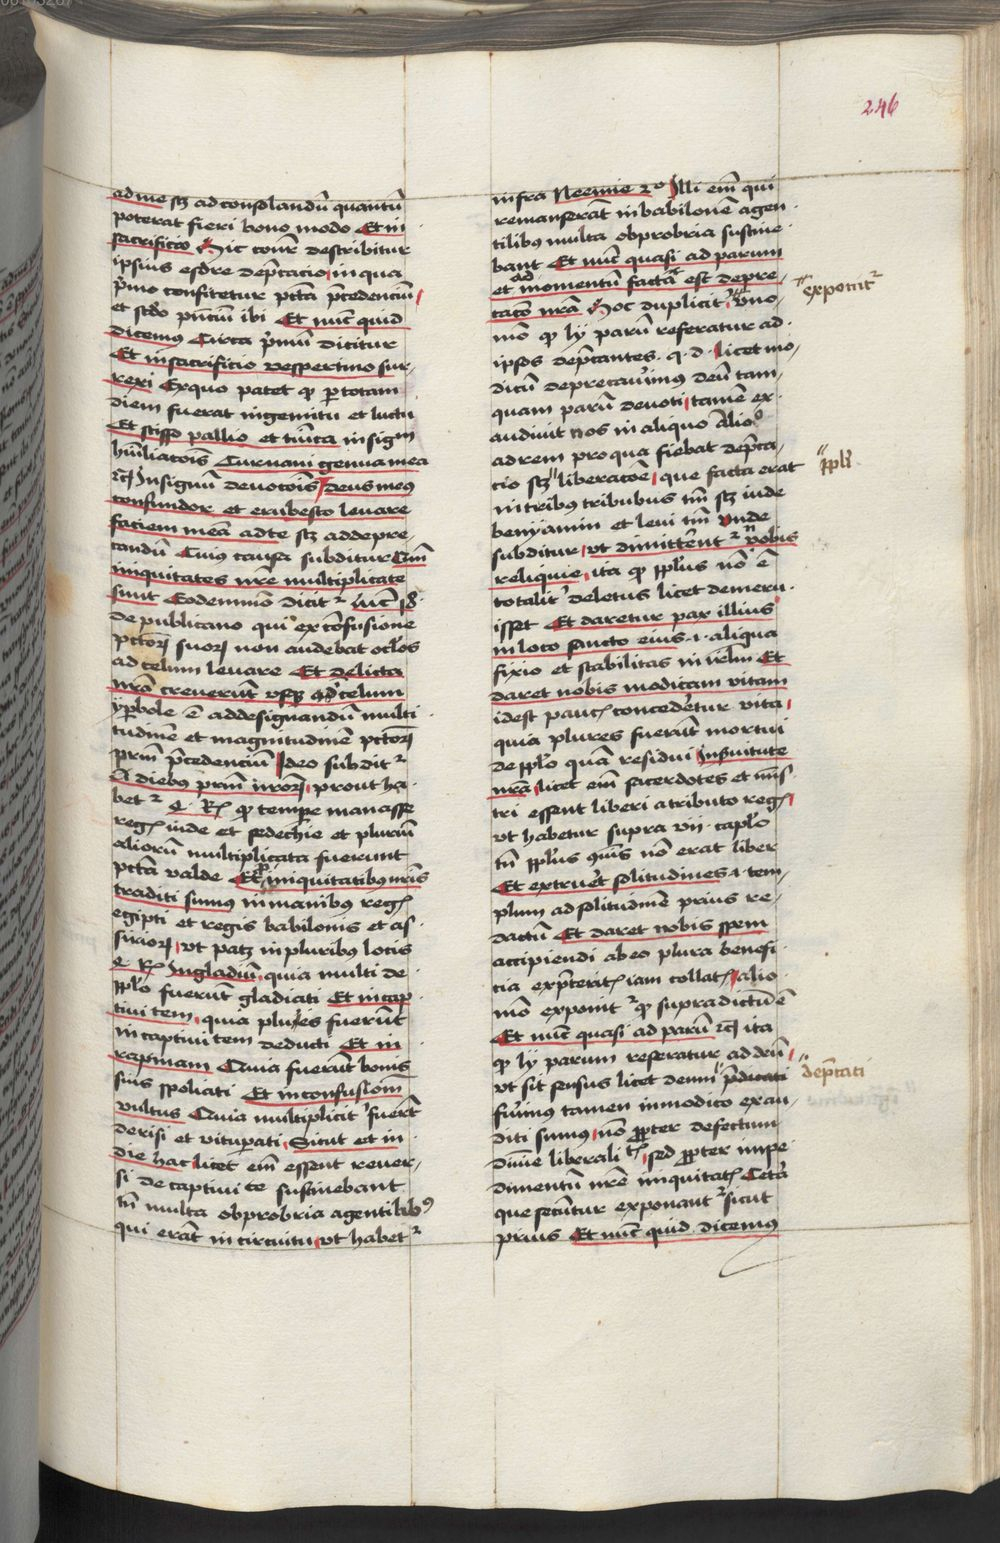 246
ad me scz ad consolandū quantū
poterat fieri bono modo Et in
sacrificio Hic conīr describitur
ipsius esdre dep̄catio in qua
p̄mo confitetur pctā p̄cedenciū
et scdo pn̄ciū ibi Et nūc quid
dicemus Circa p̄mū dicitur
Et in sacrificio vespertino sur-
rexi Ex quo patet ꝙ ꝑ totam
diem fuerat in gemitu et luctu
Et scisso pallio et tūica in sign
hūiliatōis Curuaui genua mea
rcꝫ In signū deuotōis deus meus
confundor et erubesco leuare
faciem meā ad te scz ad depre-
candū Cuius causa subditur Cum
iniquitates nr̄e multiplicate
sunt Eodem mō dicitr luc̄ 18
de publicano qui ex confusione
pctōꝝ suoꝝ non audebat oclos
ad celum leuare Et delicta
nr̄a creuerūt vsqꝫ ad celum
yꝑbole ē ad designandū multi
tudinē et magnitudinē pctōꝝ
prm̄ p̄cedenciū Ideo subditr
A diebus prm̄ nr̄oꝝ prout ha-
betr 4 Rꝫ ꝙ tempe manasse
regꝫ iude et sedechie et pluriū
aliorū multiplicata fuerunt
pctā valde Et ꝓ iniquitatibus nr̄is
traditi sumus in manibus regꝫ
egipti et regis babilonis et as-
sirioꝝ vt patꝫ in pluribus locis
4 Rꝫ In gladiū quia multi de
pplō fuerūt gladiati Et in cap
tiui tem quia plures fuerūt
in captiui tem deducti Et in
rapinam Quia fuerūt bonis
suis spoliati Et in confusiōm
vultus Quia multiplicitr fuerūt
derisi et vituꝑati Sicut et in
die hac licet em̄ essent reuer-
si de captiui te sustinebant
tn̄ multa obprobria a gentilibꝰ
qui erāt in circuitu vt habetr
infra Neemie 2o Illi em̄ qui
remanserāt in babilonē a gen
tilibus multa obprobria sustine
bant Et nūc quasi ad parum
et ad momentū facta est depre-
catō nr̄a Hoc duplicitr vno
mō ꝙ ly parū referatur ad
ipsos dep̄cantes. q. d. licet mo-
dicū deprecauimus deū tam-
quam parū deuoti tamē ex-
audiuit nos in aliquo Alio
ad rem pro qua fiebat dep̄ca-
cio scz liberacōe que facta erat
in tribus tribubus tm̄ scz iude
benyamin et leui tm̄ Vnde
subditur vt dimitterēntr nobis
reliquie ita ꝙ pplūs nō ē
totalitr deletus licet demeru-
isset Et daretur pax illius
in loco sancto eius .i. aliqua
fixio et stabilitas in irlm̄ Et
daret nobis modicam vitam
id est paucꝫ concederetur vita
quia plures fuerūt mortui
de pplō quā residui In seruitute
nr̄a licet em̄ sacerdotes et mīs
tri essent liberi a tributo regꝫ
vt habetur supra vii. caplo
tn̄ pplūs quis nō erat liber
Et extrueret solitudines .i. tem-
plum ad solitudinē prius re-
dactū Et daret nobis spem
accipiendi ab eo plura benefi-
cia exp̄teritꝫ iam collatꝫ alio
mō exponitr ꝙ supradictū ē
Et nūc quasi ad parū rcꝫ ita
ꝙ ly parum referatur ad deū
vt sit sensus licet deum p̄dicati
fuimus tamen in modico exau-
diti sumus nō ꝓpter defectum
diuīe liberalitꝫ sed ꝓpter impe
dimentū nr̄e iniquitatꝫ Cetera
que secūntur exponantr sicut
prius Et nūc quid dicemus
exponitr
ppli
dep̄cati